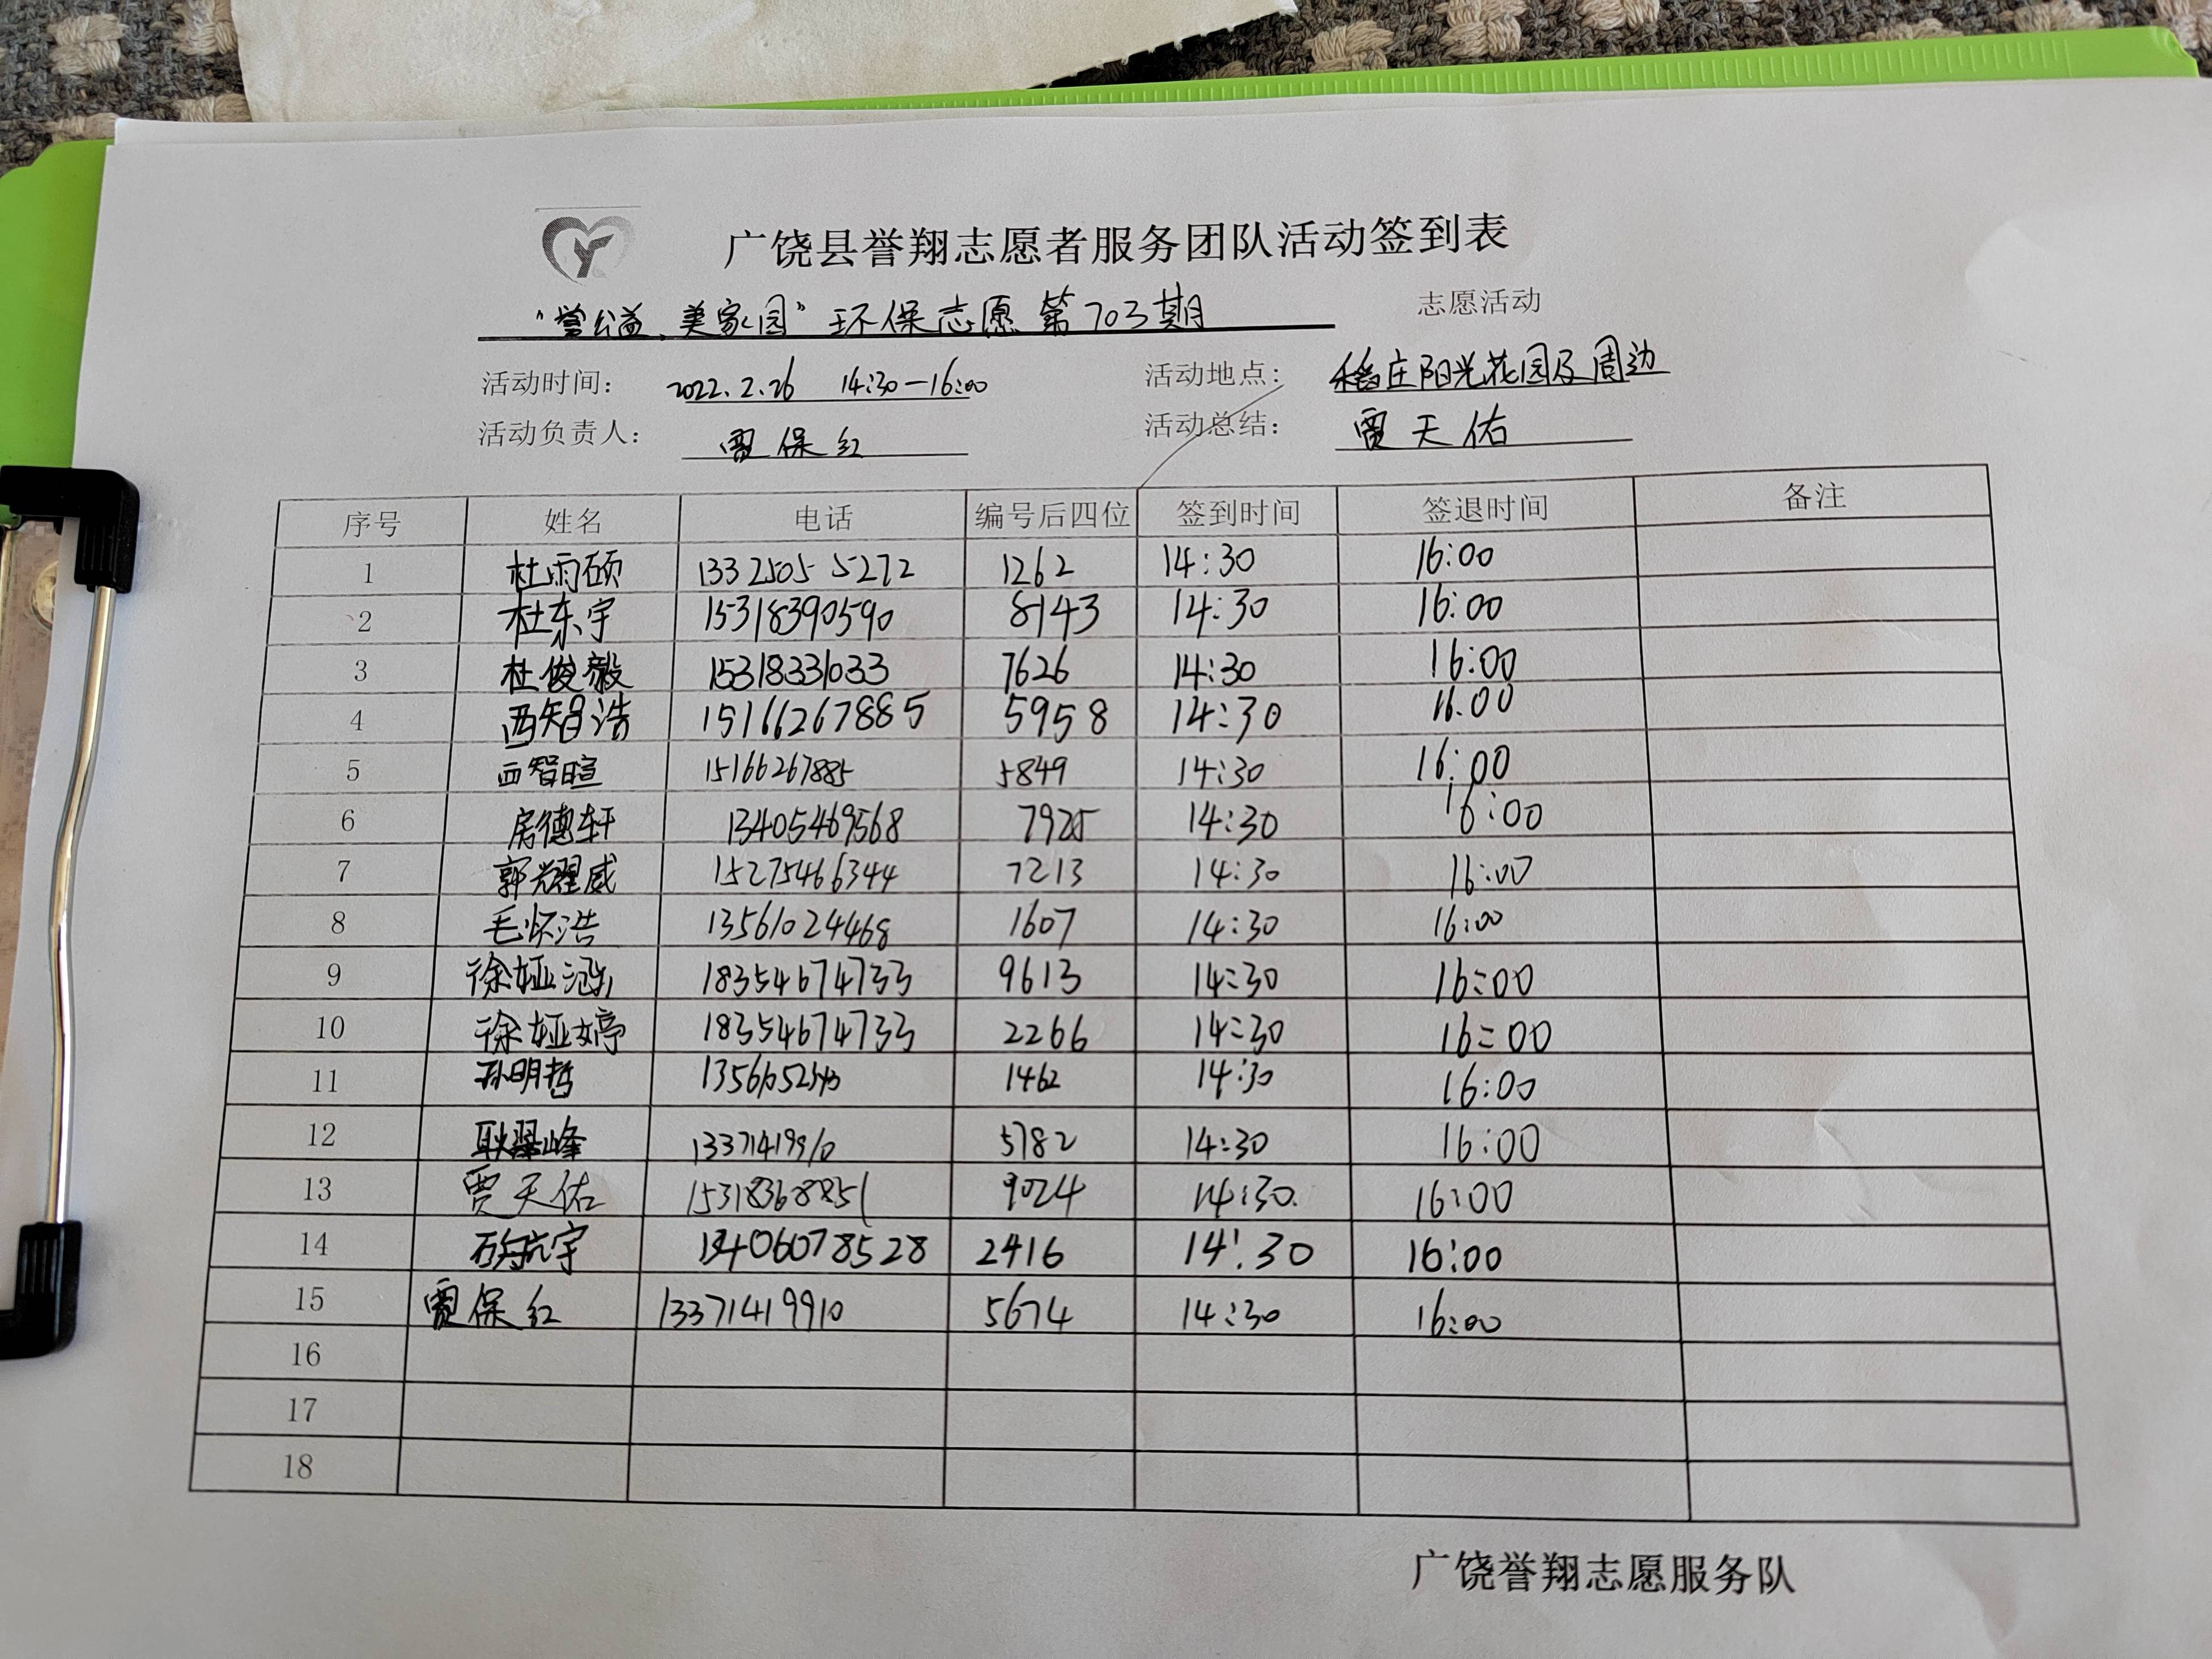 广饶县誉翔志愿者服务团队活动签到表
“誉公益，美家园”环保志愿第703期 志愿活动
活动时间： 2022.2.26 14:30—16:00 活动地点： 稻庄阳光花园及周边
活动负责人： 贾保红 活动总结： 贾天佑
序号 姓名 电话 编号后四位 签到时间 签退时间 备注
1 杜雨硕 13325055272 1262 14:30 16:00
2 杜东宇 15318390590 8143 14:30 16:00
3 杜俊毅 15318331033 7626 14:30 16:00
4 西智浩 15166267885 5958 14:30 16.00
5 西智暄 15166267885 5849 14:30 16:00
6 房德轩 13405469568 7925 14:30 16:00
7 郭耀威 15275466344 7213 14:30 16:00
8 毛怀浩 13561024468 1607 14:30 16:00
9 徐娅涵 18354674733 9613 14:30 16:00
10 徐娅婷 18354674733 2266 14:30 16:00
11 孙明哲 1462 14:30 16:00
12 13371419910 5782 14:30 16:00
13 贾天佑 15318368851 9024 14:30. 16:00
14 宇 13406078528 2416 14:30 16:00
15 贾保红 13371419910 5674 14:30 16:00
16
17
18
广饶誉翔志愿服务队